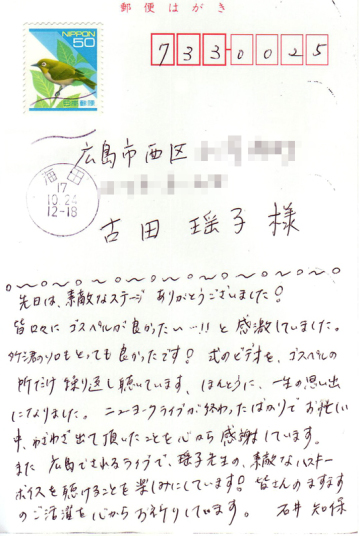 郵便はがき
NIPPON
50
日本郵便
733-0025
海田
17
10.24
12-18
広島市西区
古田 瑶子 様
先日は、素敵なステージ ありがとうございました!
皆口々に ゴスペルが良かったい…!! と感激していました。
のソロもとっても良かったです! 式のビデオを、ゴスペルの
所だけ繰り返し聴いています。ほんとうに、一生の思い出
になりました。ニューヨークライブが終わったばかりでお忙しい
中、わざわざ出て頂いたことを心から感謝しています。
また 広島でされるライブで、瑶子先生の、素敵なハスキー
ボイスを聴けることを楽しみにしています! 皆さんのますます
のご活躍を心からお祈りしています。 石井 知保